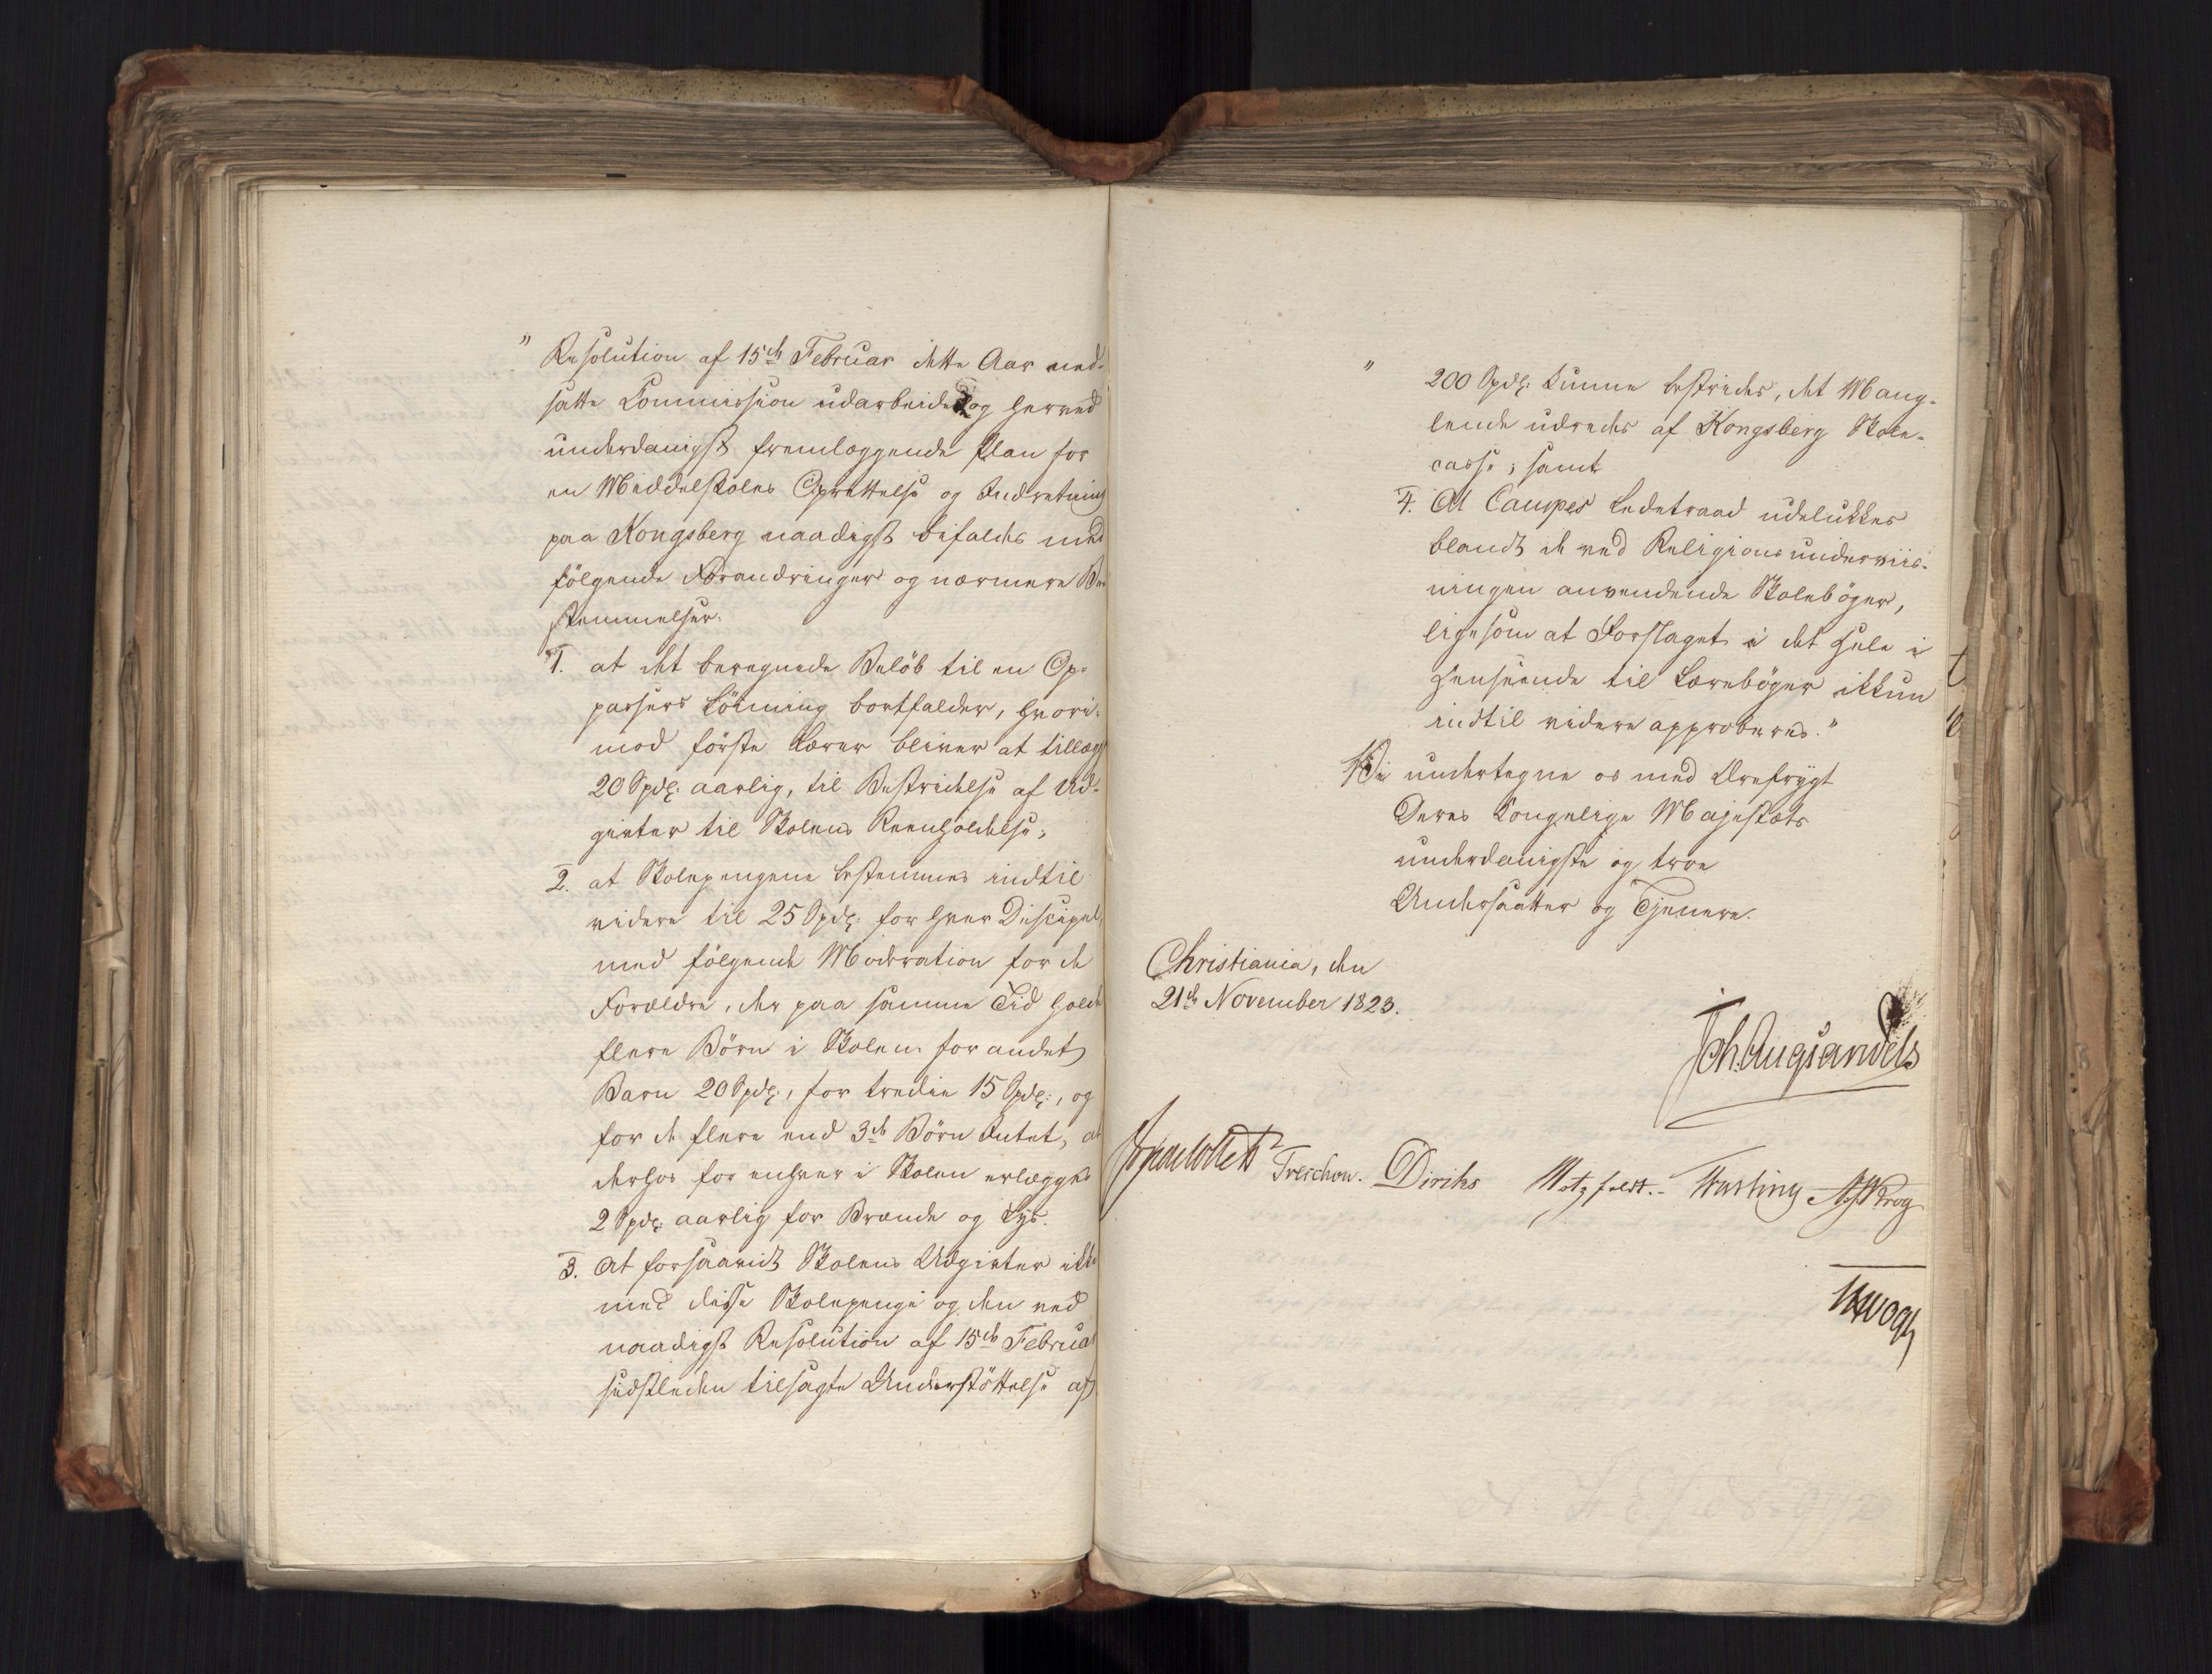 " Resolution af 15de Februar dette Aar ned-
satte Commission udarbeidet og herved
underdanigst fremlæggende Plan for
en Middelskoles Oprettelse og Indretning
paa Kongsberg naadigst bifaldes med
følgende Forandringer og nærmere Be-
stemmelser:
1. at det beregnede Beløb til en Op-
passers Lönning bortfalder, hvori-
mod første Lærer bliver at tillægge
20 Spdlr: aarlig, til Bestridelse af Ud-
givter til Skolens Reenholdelse;
2. at Skolepengene bestemmes indtil
videre til 25 Spdlr: for hver Discipel,
med følgende Moderation for de
Forældre, der paa samme Tid holde
flere Börn i Skolen: for andet
Barn 20 Spdlr:, for tredie 15 Spdlr:, og
for de flere end 3de Börn Intet, at
derhos for enhver i Skolen erlægges
2 Spdlr: aarlig for Brænde og Lys.
3. At forsaavidt Skolens Udgivter ikke
med disse Skolepenge og den ved
naadigst Resolution af 15de Februar
sidstleden tilsagte Understöttelse af
" 200 Spdlr: kunne bestrides, det Mang-
lende udredes af Kongsberg Skole-
casse; samt
4. At Campes Ledetraad udelukkes
blandt de ved Religionsunderviis-
ningen anvendende Skoleböger,
ligesom at Forslaget i det Hele i
Henseende til Læreböger ikkun
indtil videre approberes."
Vi undertegne os med Ærefrygt
Deres Kongelige Majestæts
underdanigste og troe
Undersaatter og Tjenere.
Christiania, den
21de November 1823.
Joh. Aug. Sandels
Treschow. Diriks Motzfeldt.- Fasting Krog